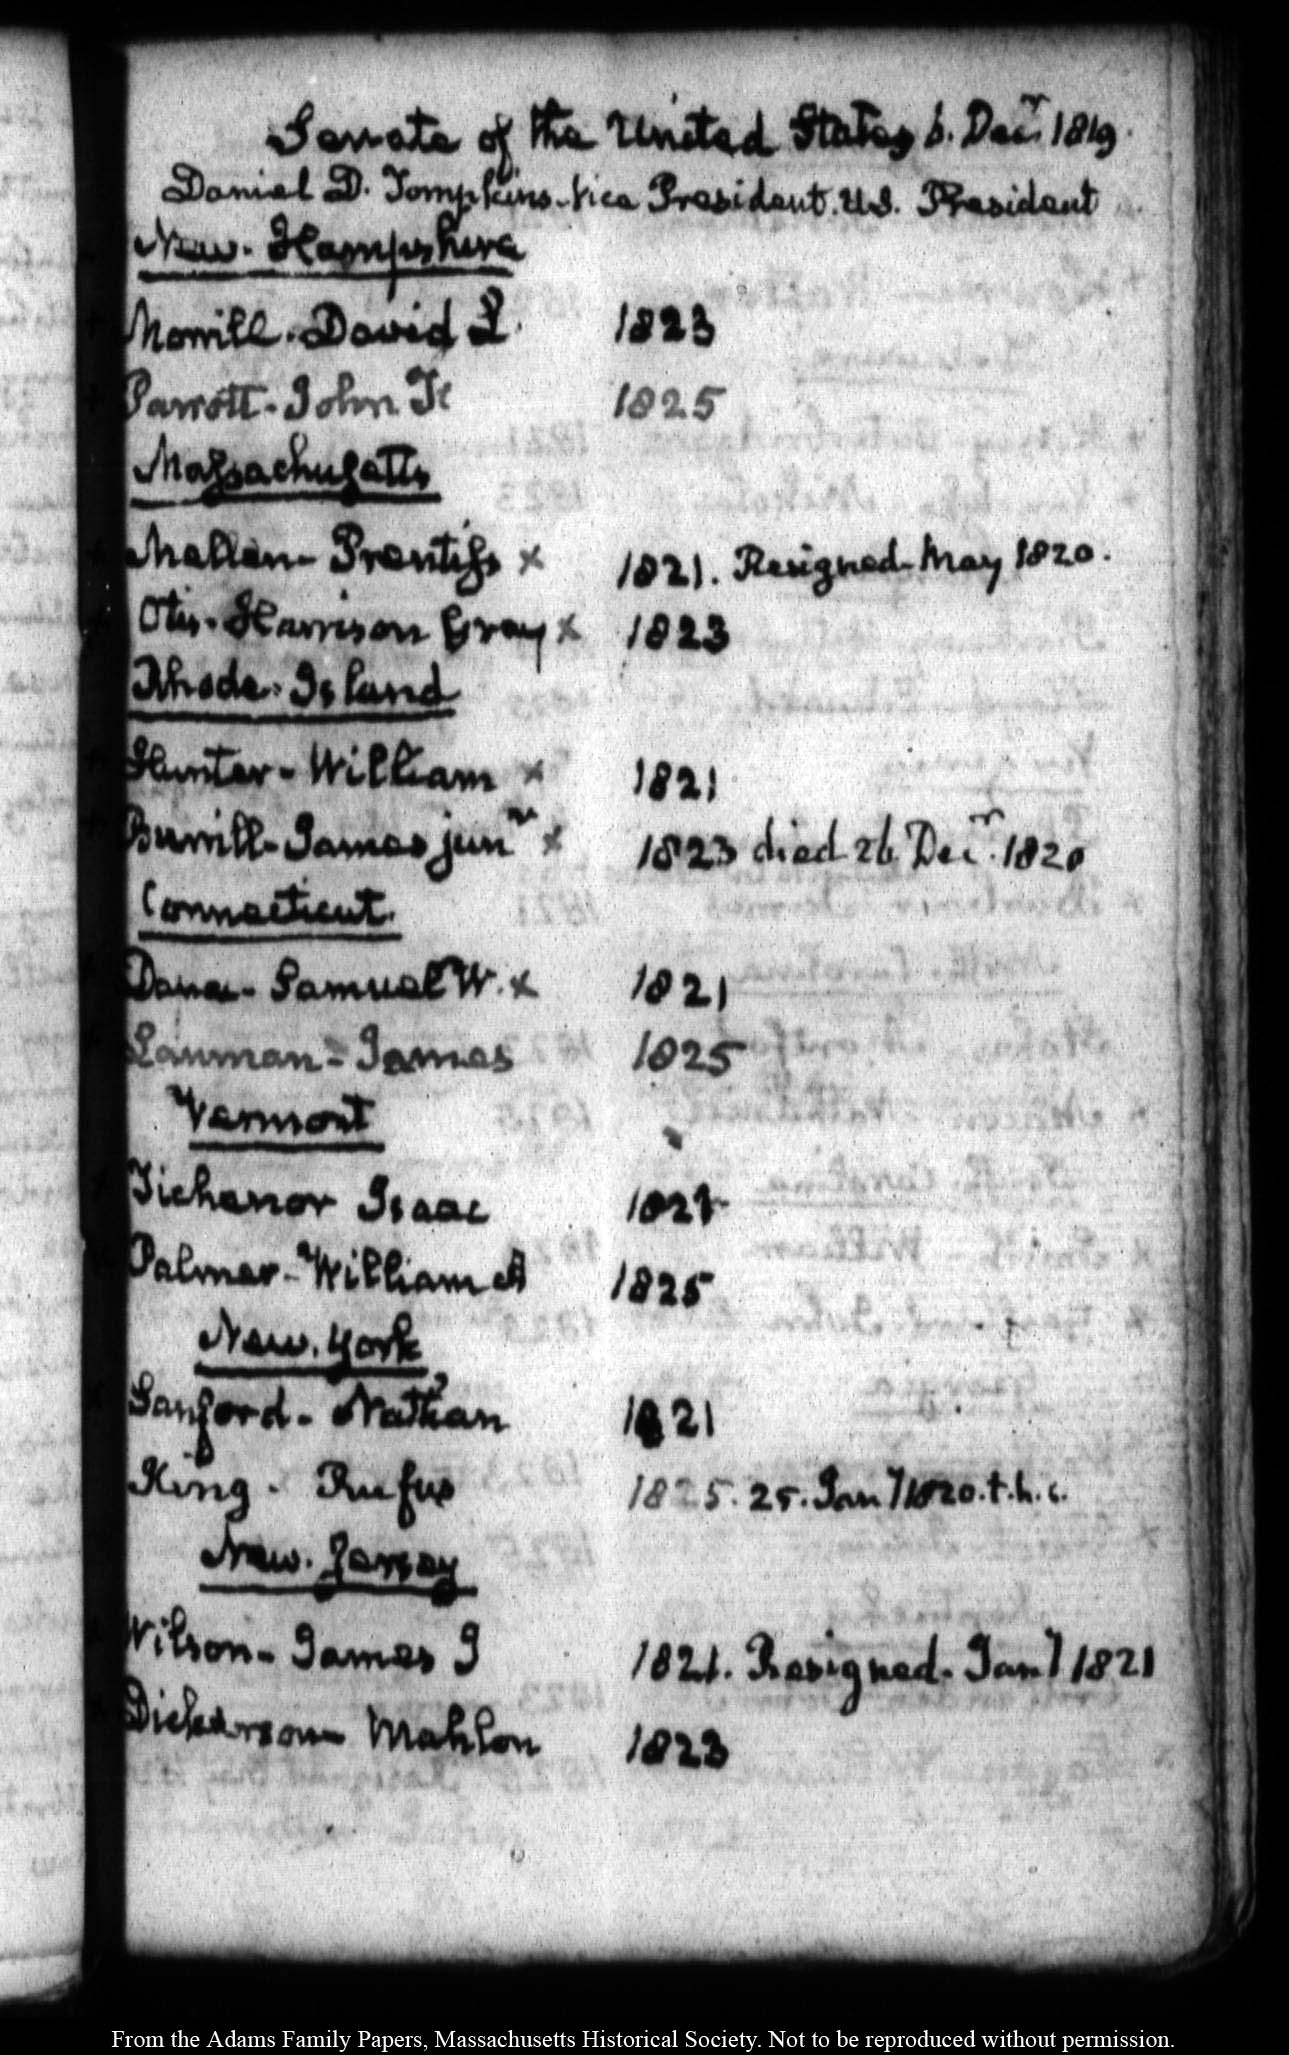 Senate of the United States 6. Decr. 1819.
Daniel D. Tompkins. Vice President. U.S. President
New-Hampshire
Morrill. David L. 1823
Parrott- John F 1825
Massachusetts
Mellen- Prentiss × 1821. Resigned- May 1820.
Otis- Harrison Gray × 1823
Rhode-Island
Hunter- William × 1821
Burrill- James junr × 1823 died 26 Decr. 1820
Connecticut.
Dana- Samuel W. × 1821
Lanman- James 1825
Vermont
Tichenor Isaac 1821
Palmer- William A 1825
New-York
Sanford- Nathan 1821
King- Rufus 1825. 25. Jany 1820. t.h.c.
New-Jersey
Wilson- James J 1821. Resigned- Jany 1821
Dickerson- Mahlon 1823
From the Adams Family Papers, Massachusetts Historical Society. Not to be reproduced without permission.